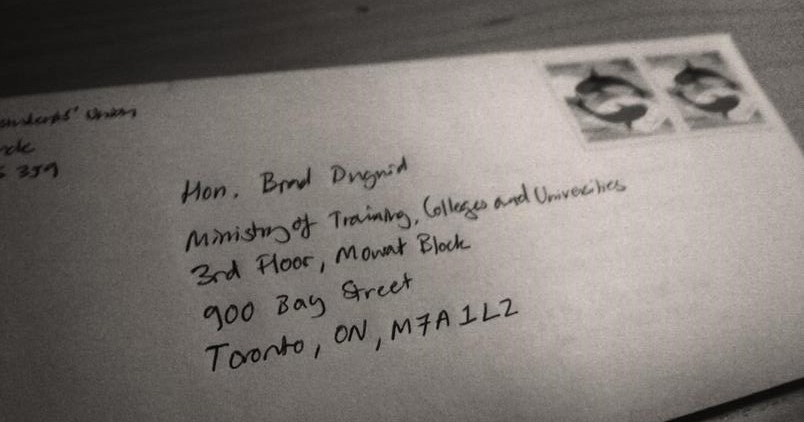 Students' Union
S 3J9
Hon. Brad Duguid
Ministry of Training, Colleges and Universities
3rd Floor, Mowat Block
900 Bay Street
Toronto, ON, M7A 1L2